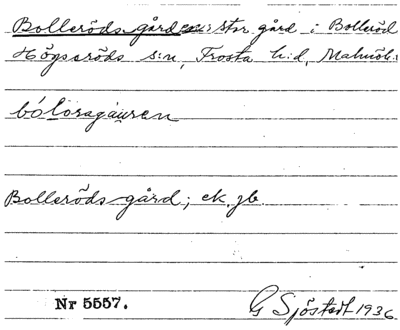 Bolleröds gården: stor gård i Bolleröd
Högseröds s:n, Frosta h:d, Malmöh:s
bólorsgáuren
Bolleröds gård; ek. jb.
Nr 5557.
G Sjöstedt 1936